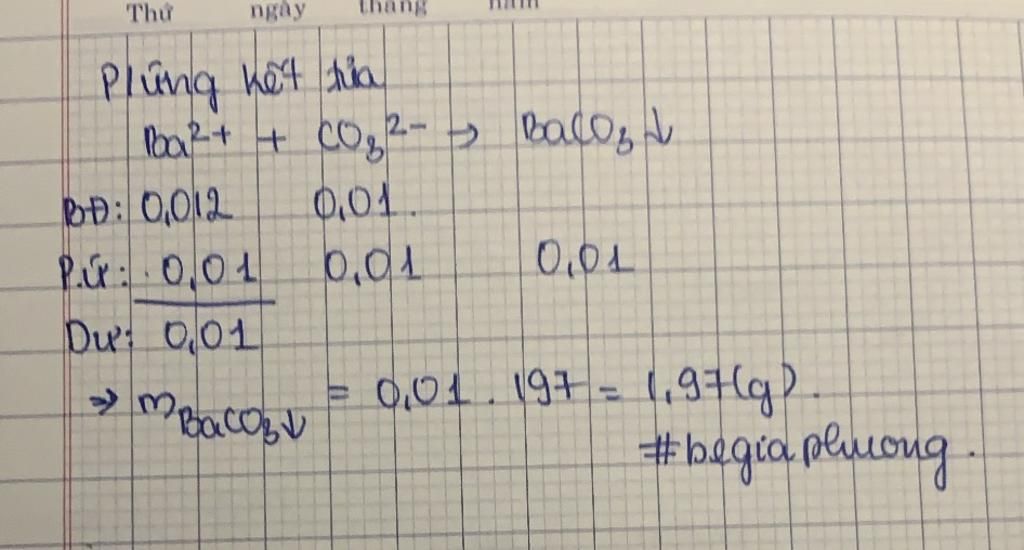 Thứ ngày tháng năm
Pứng kết tủa
Ba²⁺ + CO₃²⁻ → BaCO₃↓
BĐ: 0,012 0,01.
P.Ứ: 0,01 0,01 0,01
Dư: 0,01
⇒ mBaCO₃↓ = 0,01 . 197 = 1,97(g).
#begiaphuong.